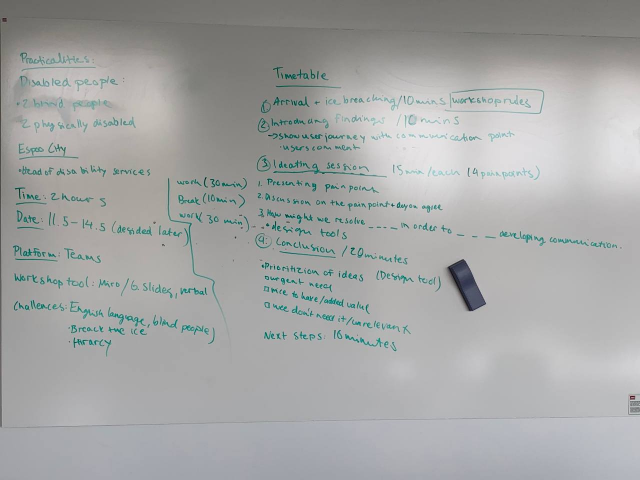 Practicalities:
Disabled people:
• 2 blind people
2 physically disabled
Espoo City
• Head of disability services
Time: 2 hours
Date: 11.5 - 14.5 (desided later)
Platform: Teams
Workshop tool: Miro / G. Slides, verbal
Challences: English language, blind people)
• Breack the ice
• Hirarcy
work (30 min)
Break (10 min)
work (30 min)
Timetable
① Arrival + ice breaching / 10 mins workshop rules
② Introducing findings / 10 mins
→ show user journey with communication point
• users comment
③ Ideating session 15 min / each (4 painpoints)
1. Presenting painpoint
2. Discussion on the painpoint + do you agree
3. How might we resolve _ _ _ _ in order to _ _ _ developing communication.
• design tools
④ Conclusion / 20 minutes
• Prioritizion of ideas (Design tool)
urgent need
nice to have / added value
we don't need it /
Next steps: 10 minutes